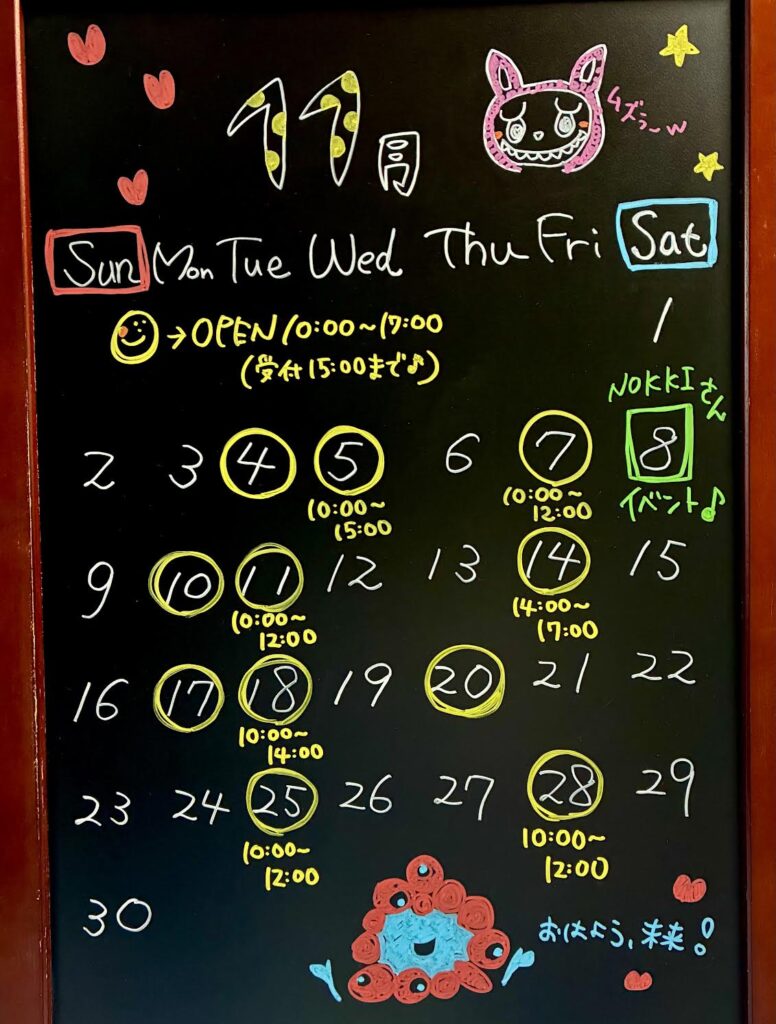 11月
ムズぅ〜w
Sun Mon Tue Wed Thu Fri Sat
→OPEN 10:00〜17:00
(受付15:00まで♪)
1
NOKKIさん
2 3 4 5 6 7 8
10:00〜
15:00
10:00〜
12:00
イベント♪
9 10 11 12 13 14 15
10:00〜
12:00
14:00〜
17:00
16 17 18 19 20 21 22
10:00〜
14:00
23 24 25 26 27 28 29
10:00〜
12:00
10:00〜
12:00
30
おはよう、未来!